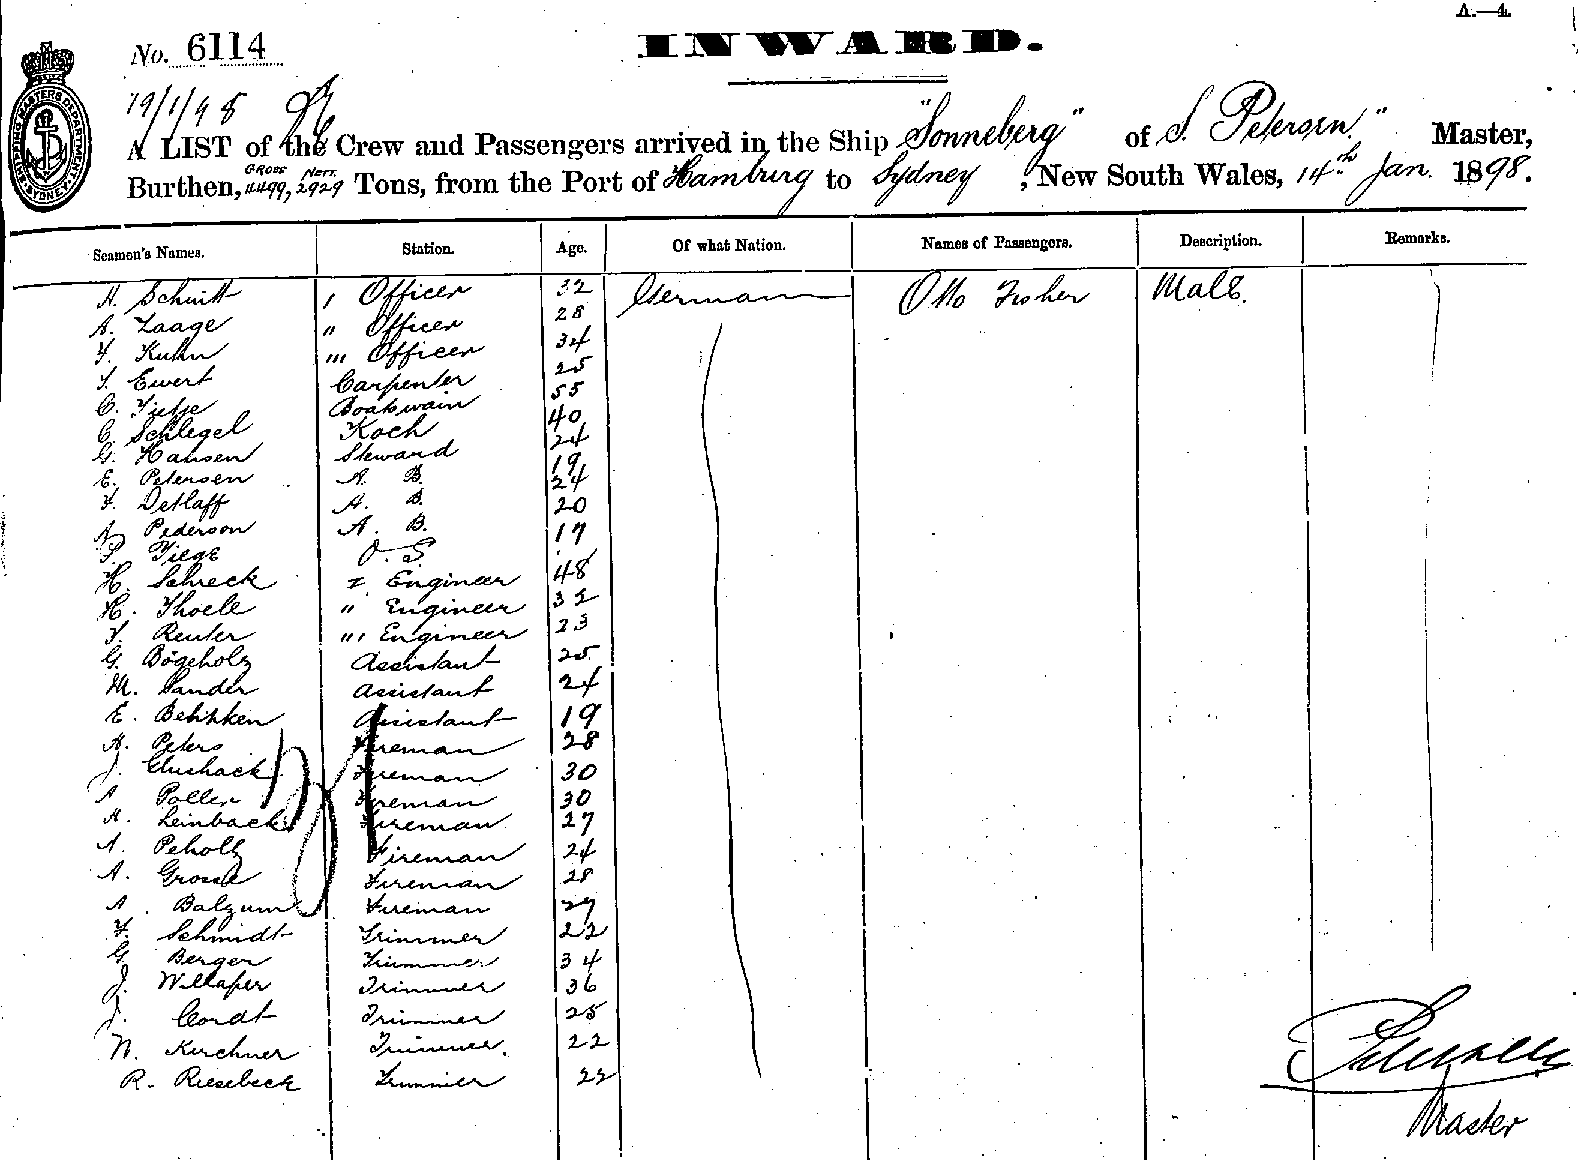 A.—4.
No. 6114
INWARD.
19/1/98
A LIST of the Crew and Passengers arrived in the Ship "Sonneberg" of S. Petersen." Master,
Burthen, GROSS 4499, Nett. 2929 Tons, from the Port of Hamburg to Sydney, New South Wales, 14th Jan. 1898.
Seamen's Names. Station. Age. Of what Nation. Names of Passengers. Description. Remarks.
A. Schmitt , Officer 32 German Otto Fisher Male.
A. Zaage " Officer 28
F. Kuhn "' Officer 34
F. Ewert Carpenter 25
C. Tietje Boatswain 55
C. Schlegel Koch 40
G. Hansen Steward 24
E. Petersen A. B. 19
F. Detlaff A. B. 24
A. Pederson A. B. 20
P. Tiege O. S. 17
H. Schreck I Engineer 48
H. Thoele " Engineer 32
F. Reuter "' Engineer 23
G. Bögeholz Assistant 25
M. Sander Assistant 24
E. Assistant 19
A. Peters Fireman 28
J. Fireman 30
A. Poller Fireman 30
A. Leinback Fireman 27
A. Fireman 24
A. Grosse Fireman 28
A. Balzum Fireman 27
F. Schmidt Trimmer 22
G. Berger Trimmer 34
J. Trimmer 36
J. Cordt Trimmer 25
W. Kirchner Trimmer. 22
R. Riesebeck Trimmer 22
Master